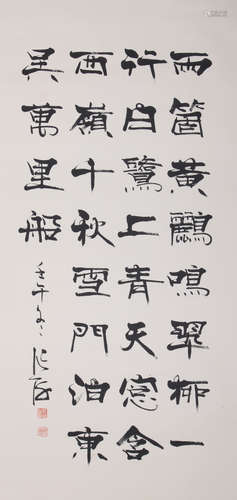 兩箇黃鸝鳴翠柳一
行白鷺上青天窓含
西嶺千秋雪門泊東
吳萬里船
壬午冬